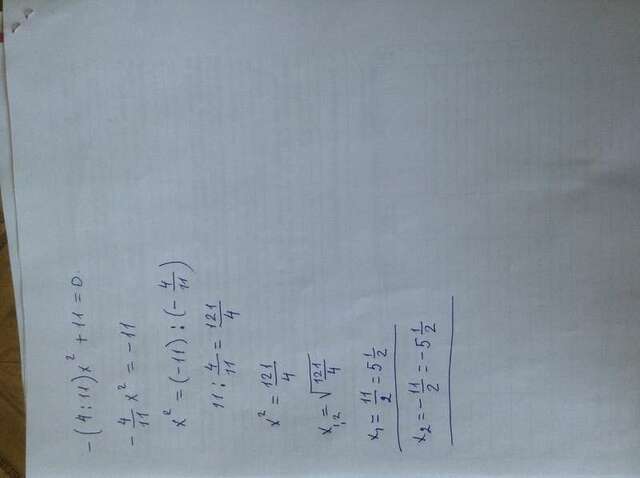 -(4:11)x² + 11 = 0.
-4/11 x² = -11
x² = (-11) : (-4/11)
11 : 4/11 = 121/4
x² = 121/4
x₁,₂ = √(121/4)
x₁ = 11/2 = 5 1/2
x₂ = -11/2 = -5 1/2